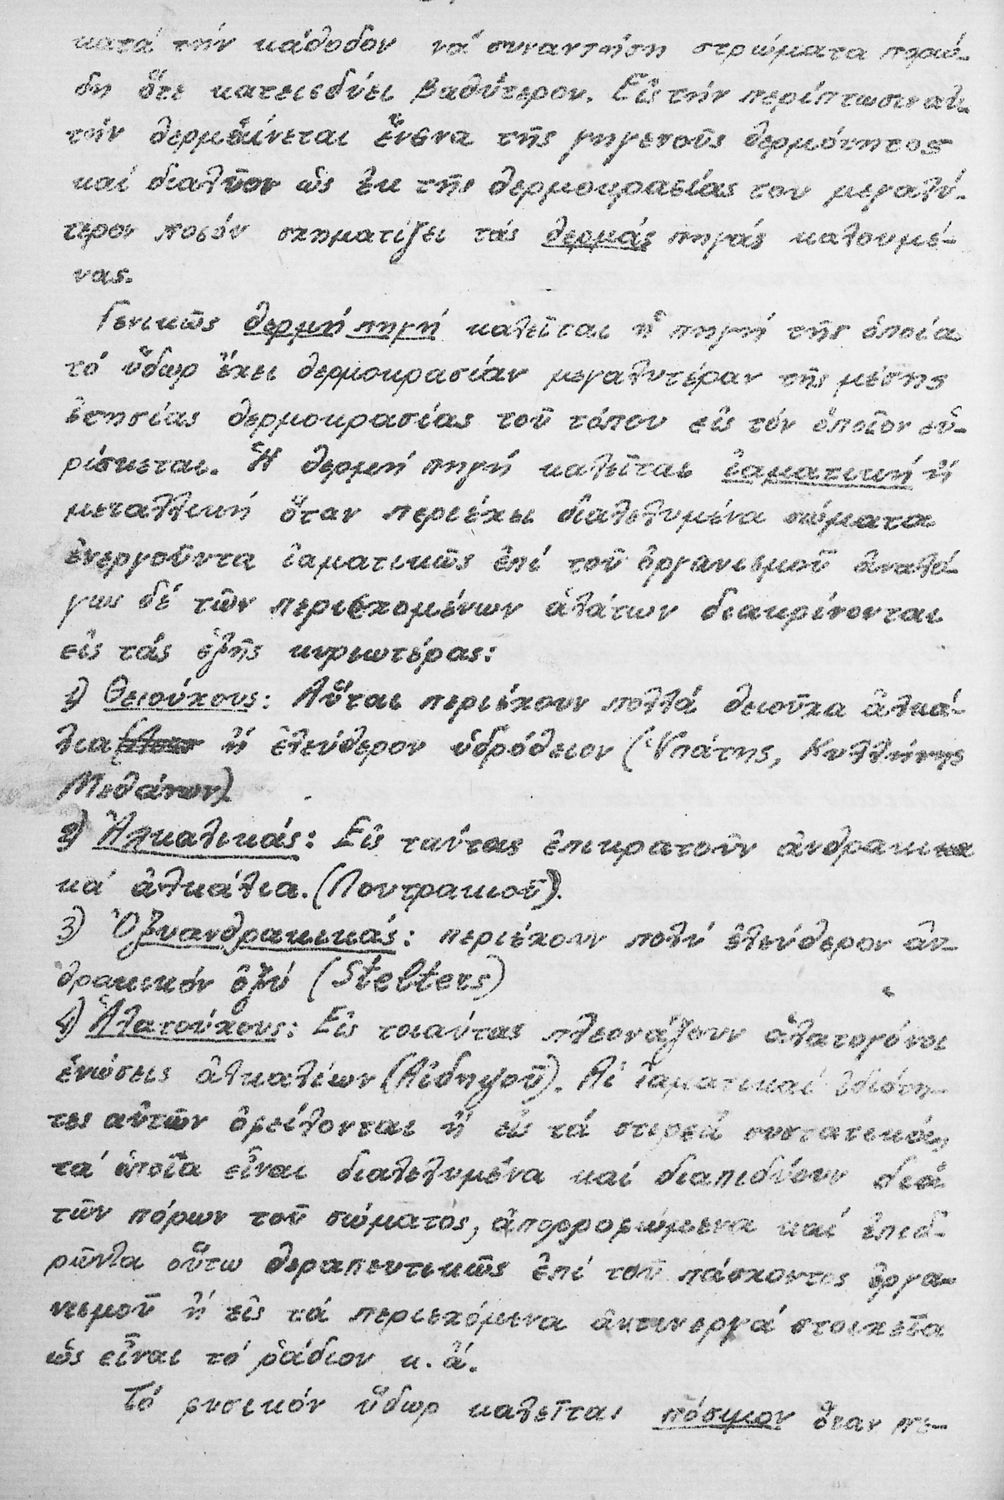 κατά τήν κάθοδον νά συναντήση στρώματα πορώ-
δη ὅτε κατεισδύει βαθύτερον. Εἰς τήν περίπτωσιν αὐ-
τήν θερμαίνεται ἕνεκα τῆς γηγενοῦς θερμότητος
καί διαλῦον ὡς ἐκ τῆς θερμοκρασίας του μεγαλύ-
τερον ποσόν σχηματίζει τάς θερμάς πηγάς καλουμέ-
νας.
Γενικῶς θερμή πηγή καλεῖται ἡ πηγή τῆς ὁποία
τό ὕδωρ ἔχει θερμοκρασίαν μεγαλυτέραν τῆς μέσης
ἐτησίας θερμοκρασίας τοῦ τόπου εἰς τόν ὁποῖον εὑ-
ρίσκεται. Ἡ θερμή πηγή καλεῖται ἰαματική ἤ
μεταλλική ὅταν περιέχει διαλελυμένα σώματα
ἐνεργοῦντα ἰαματικῶς ἐπί τοῦ ὀργανισμοῦ ἀναλό-
γως δέ τῶν περιεχομένων ἁλάτων διακρίνονται
εἰς τάς ἑξῆς κυριωτέρας:
1) Θειούχους: Αὗται περιέχουν πολλά θειοῦχα ἀλκά-
λια ἤ ἐλεύθερον ὑδρόθειον (Ὑπάτης, Κυλλήνης
Μεθάνων)
2) Ἀλκαλικάς: Εἰς ταύτας ἐπικρατοῦν ἀνθρακι-
κά ἀλκάλια. (Λουτρακιοῦ).
3) Ὀξυανθρακικάς: περιέχουν πολύ ἐλεύθερον ἀν-
θρακικόν ὀξύ (Stelters)
4) Ἁλατούχους: Εἰς τοιαύτας πλεονάζουν ἁλατογόνοι
ἑνώσεις ἀλκαλίων (Αἰδηψοῦ). Αἱ ἰαματικαί ἰδιότη-
τες αὐτῶν ὀφείλονται ἤ εἰς τά στερεά συστατικά,
τά ὁποῖα εἶναι διαλελυμένα καί διαπιδύουν διά
τῶν πόρων τοῦ σώματος, ἀπορροφώμενα καί ἐπιδ-
ρῶντα οὕτω θεραπευτικῶς ἐπί τοῦ πάσχοντος ὀργα-
νισμοῦ ἤ εἰς τά περιεχόμενα ἀκτινεργά στοιχεῖα
ὡς εἶναι τό ράδιον κ. ἄ.
Τό φυσικόν ὕδωρ καλεῖται πόσιμον ὅταν πε-